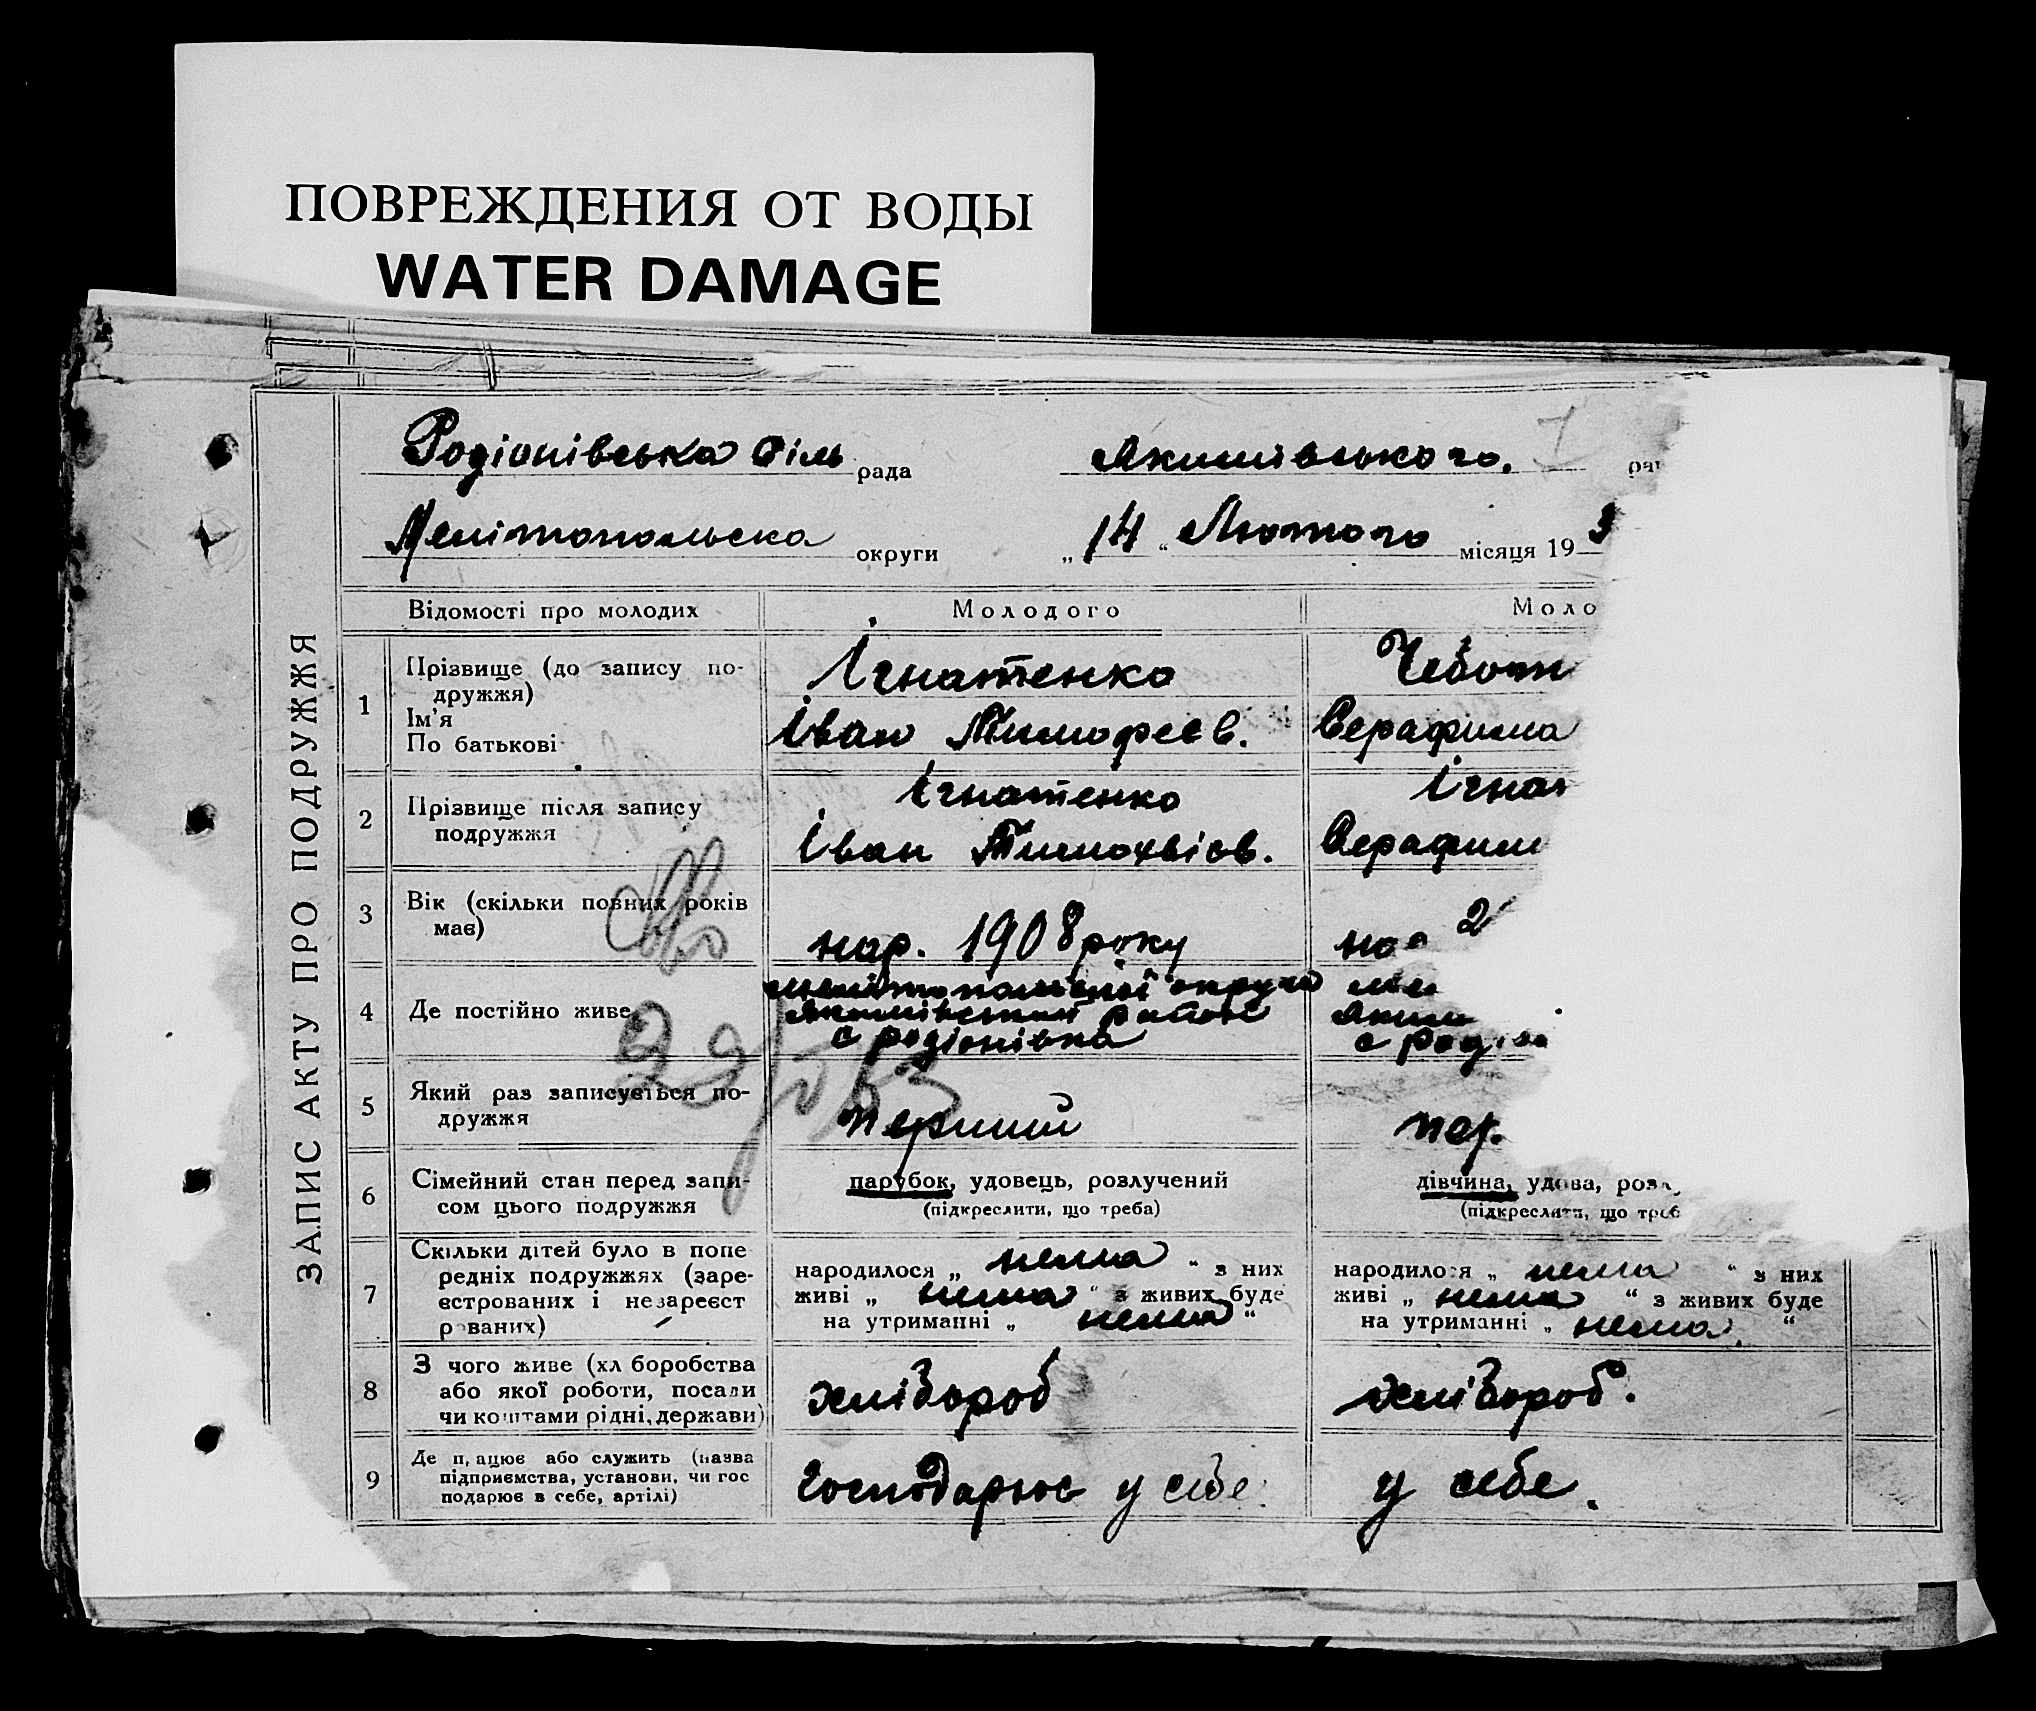 ПОВРЕЖДЕНИЯ ОТ ВОДЫ
WATER DAMAGE
ЗАПИС АКТУ ПРО ПОДРУЖЖЯ
Родіонівська Сіль рада Якимівського.
Мелітопольска округи „14“ Лютого місяця 193
Відомості про молодих Молодого Моло
1 Прізвище (до запису по-
дружжя)
Ім'я
По батькові
Ігнатенко
Іван Тимофеєв.
Чебот
Серафима
2 Прізвище після запису
подружжя
Ігнатенко
Іван Тимохвієв.
Ігнат
Серафим
3 Вік (скільки повних років
має)
нар. 1908 року
2
4 Де постійно живе
Мелітопольської округи
Якимівський район
с Родіонівка
мел
Яким
с Родіо
5 Який раз записується по-
дружжя
перший
пер.
6 Сімейний стан перед запи-
сом цього подружжя
парубок, удовець, розлучений
(підкреслити, що треба)
дівчина, удова, розл
(підкреслити, що треб
7 Скільки дітей було в попе
редніх подружжях (заре-
єстрованих і незареєст
рованих)
народилося „ нема “ з них
живі „ нема “ з живих буде
на утриманні „ нема “
народилося „ нема “ з них
живі „ нема “ з живих буде
на утриманні „ нема “
8 З чого живе (хл боробства
або якої роботи, посади
чи коштами рідні, держави)
хлібороб
хлібороб.
9 Де працює або служить (назва
підприємства, установи, чи гос
подарює в себе, артілі)
Господарює у себе.
у себе.